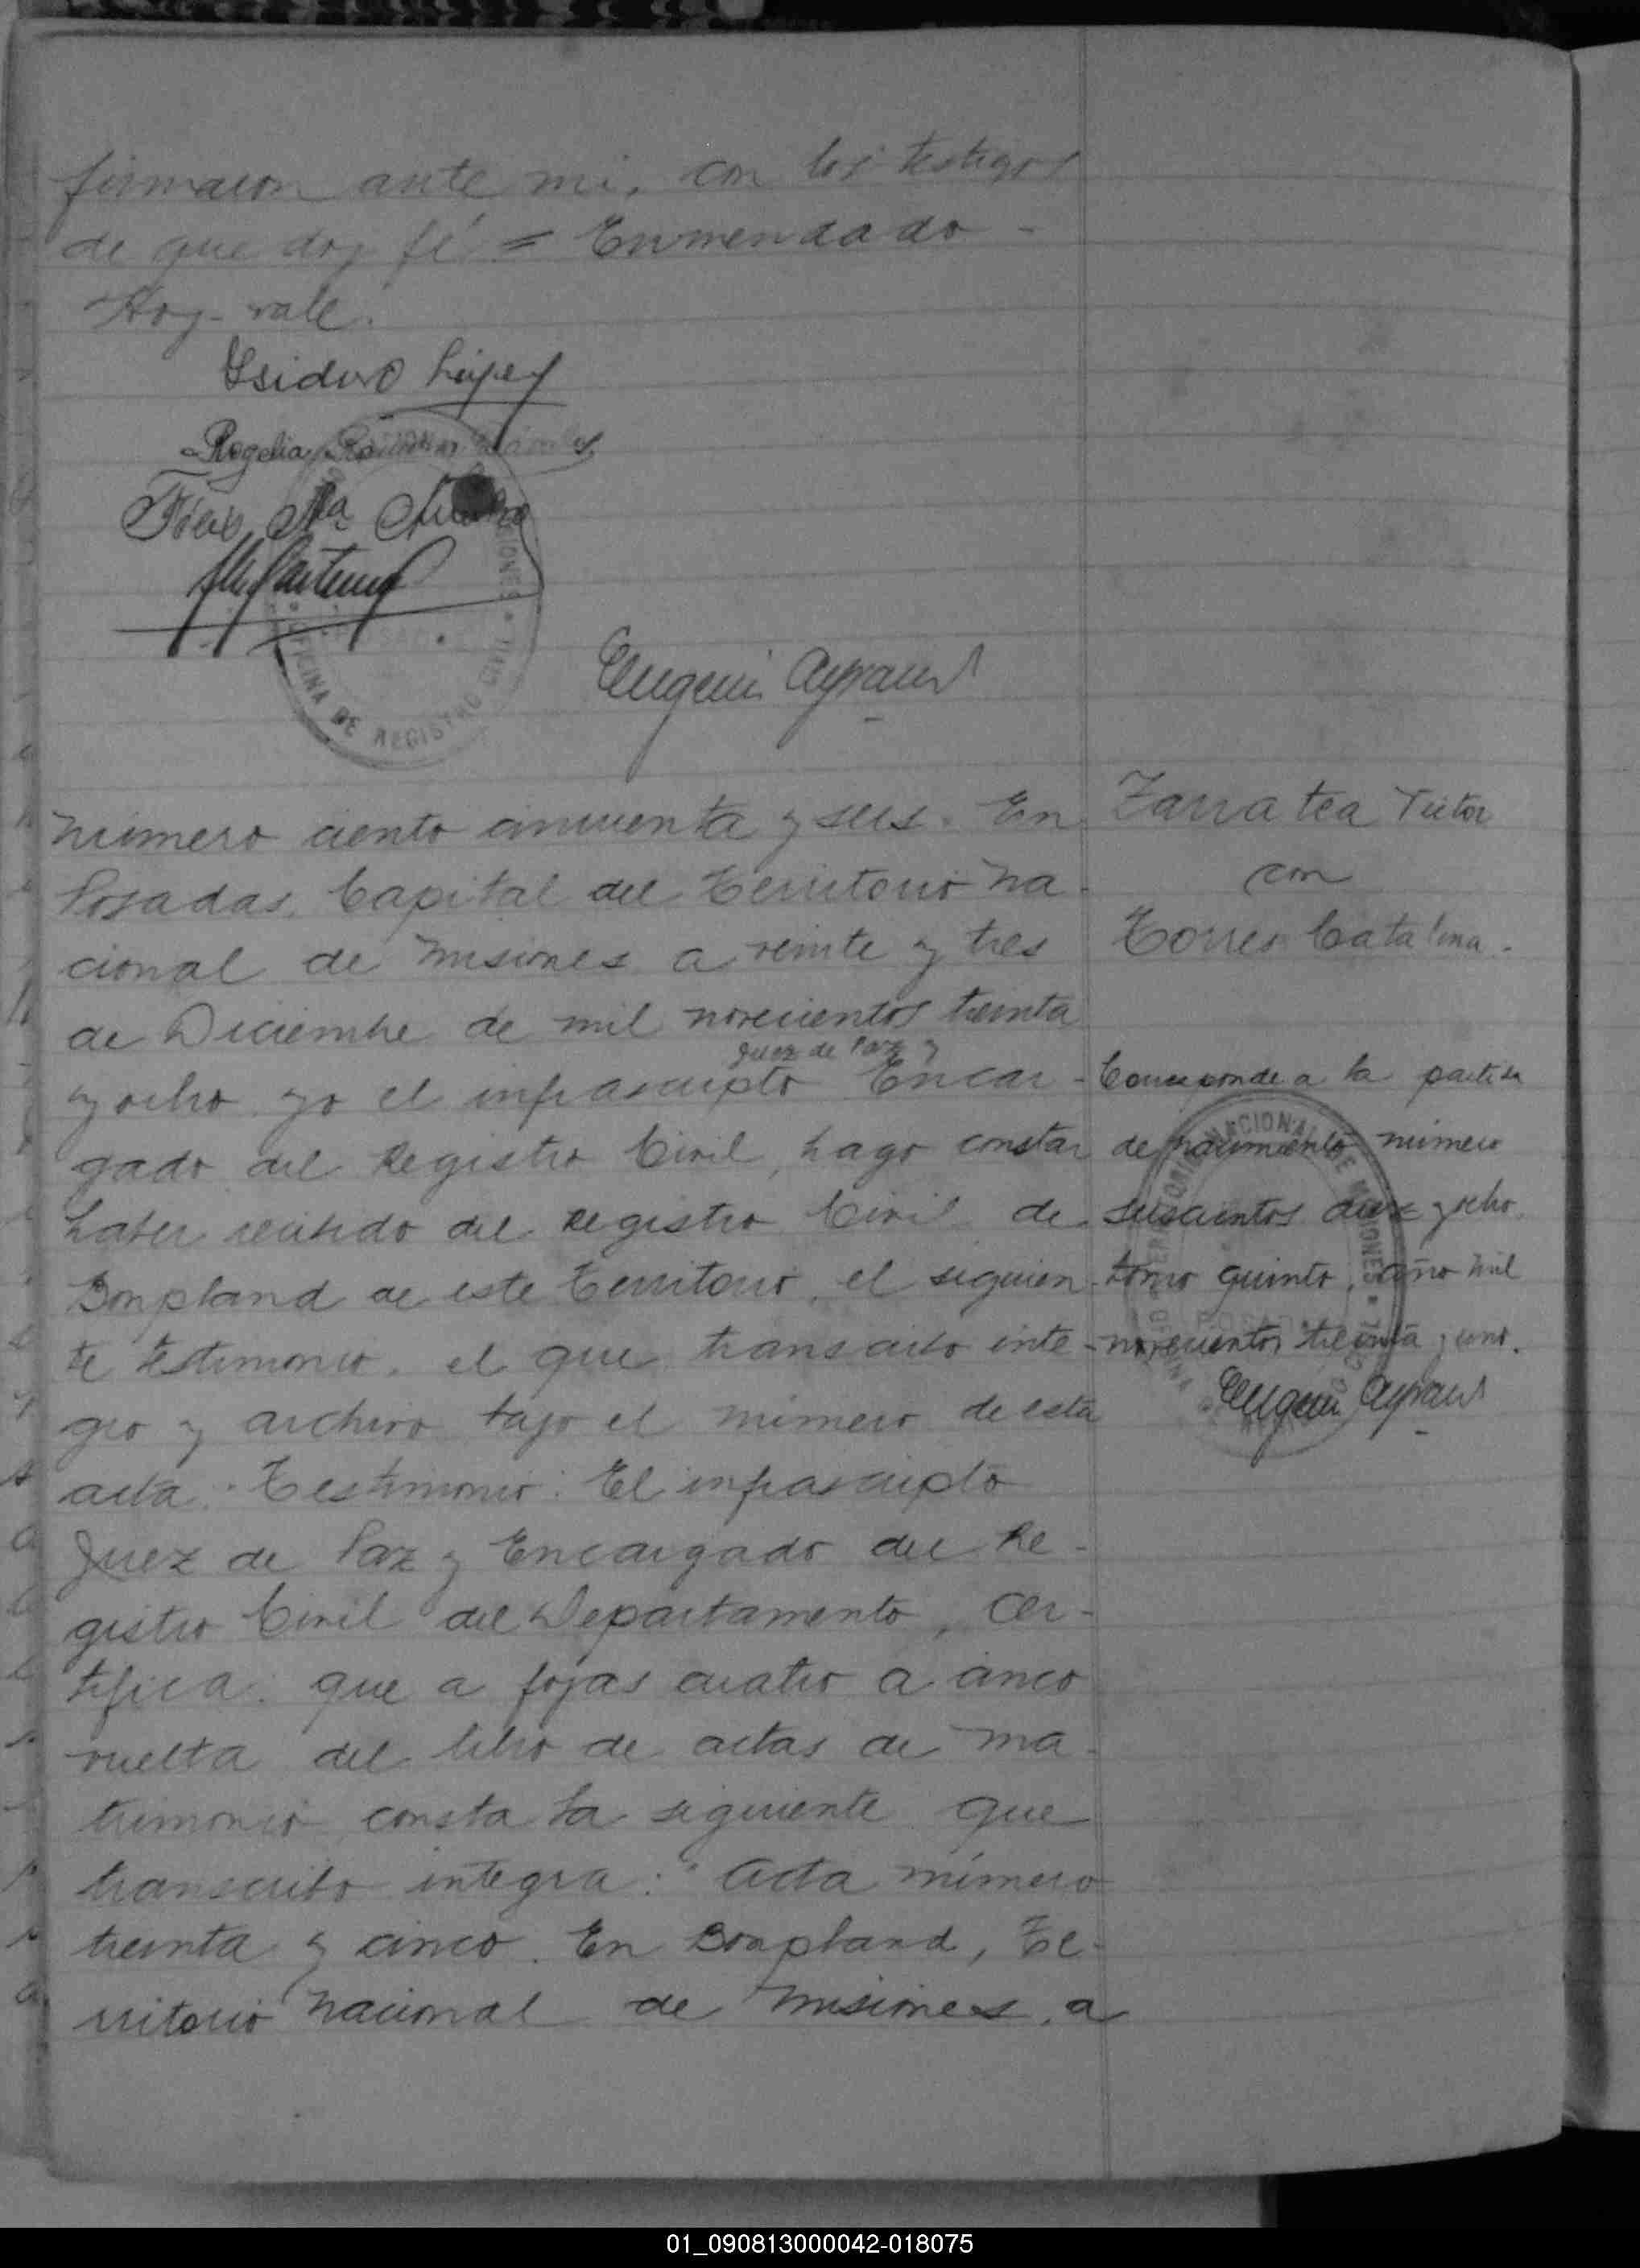 firmaron ante mi, con los testigos
de que doy fé = Enmendado -
Hoy - vale.
Isidoro López
Rogelia Ramona
Eugenio Ayraud
Número ciento cincuenta y seis. En
Posadas, Capital del Territorio Na-
cional de Misiones a veinte y tres
de Diciembre de mil novecientos treinta
Juez de Paz y
y ocho yo el infrascripto Encar-
gado del Registro Civil, hago constar
haber recibido del Registro Civil de
Bonpland de este Territorio, el siguien-
te testimonio, el que transcribo inte-
gro y archivo bajo el número de esta
acta: "Testimonio: El infrascripto
Juez de Paz y Encargado del Re-
gistro Civil del Departamento, Cer-
tifica: que a fojas cuatro a cinco
vuelta del libro de actas de ma-
trimonio consta la siguiente que
transcribo integra: "Acta número
treinta y cinco. En Bonpland, Te-
rritorio Nacional de Misiones, a
Zarratea Victor
con
Torres Catalina.
Corresponde a la partida
de nacimiento número
seiscientos diez y ocho,
tomo quinto, año mil
novecientos treinta y uno.
Eugenio Ayraud
OFICINA DE REGISTRO CIVIL
NACIONAL DE MISIONES
01_090813000042-018075